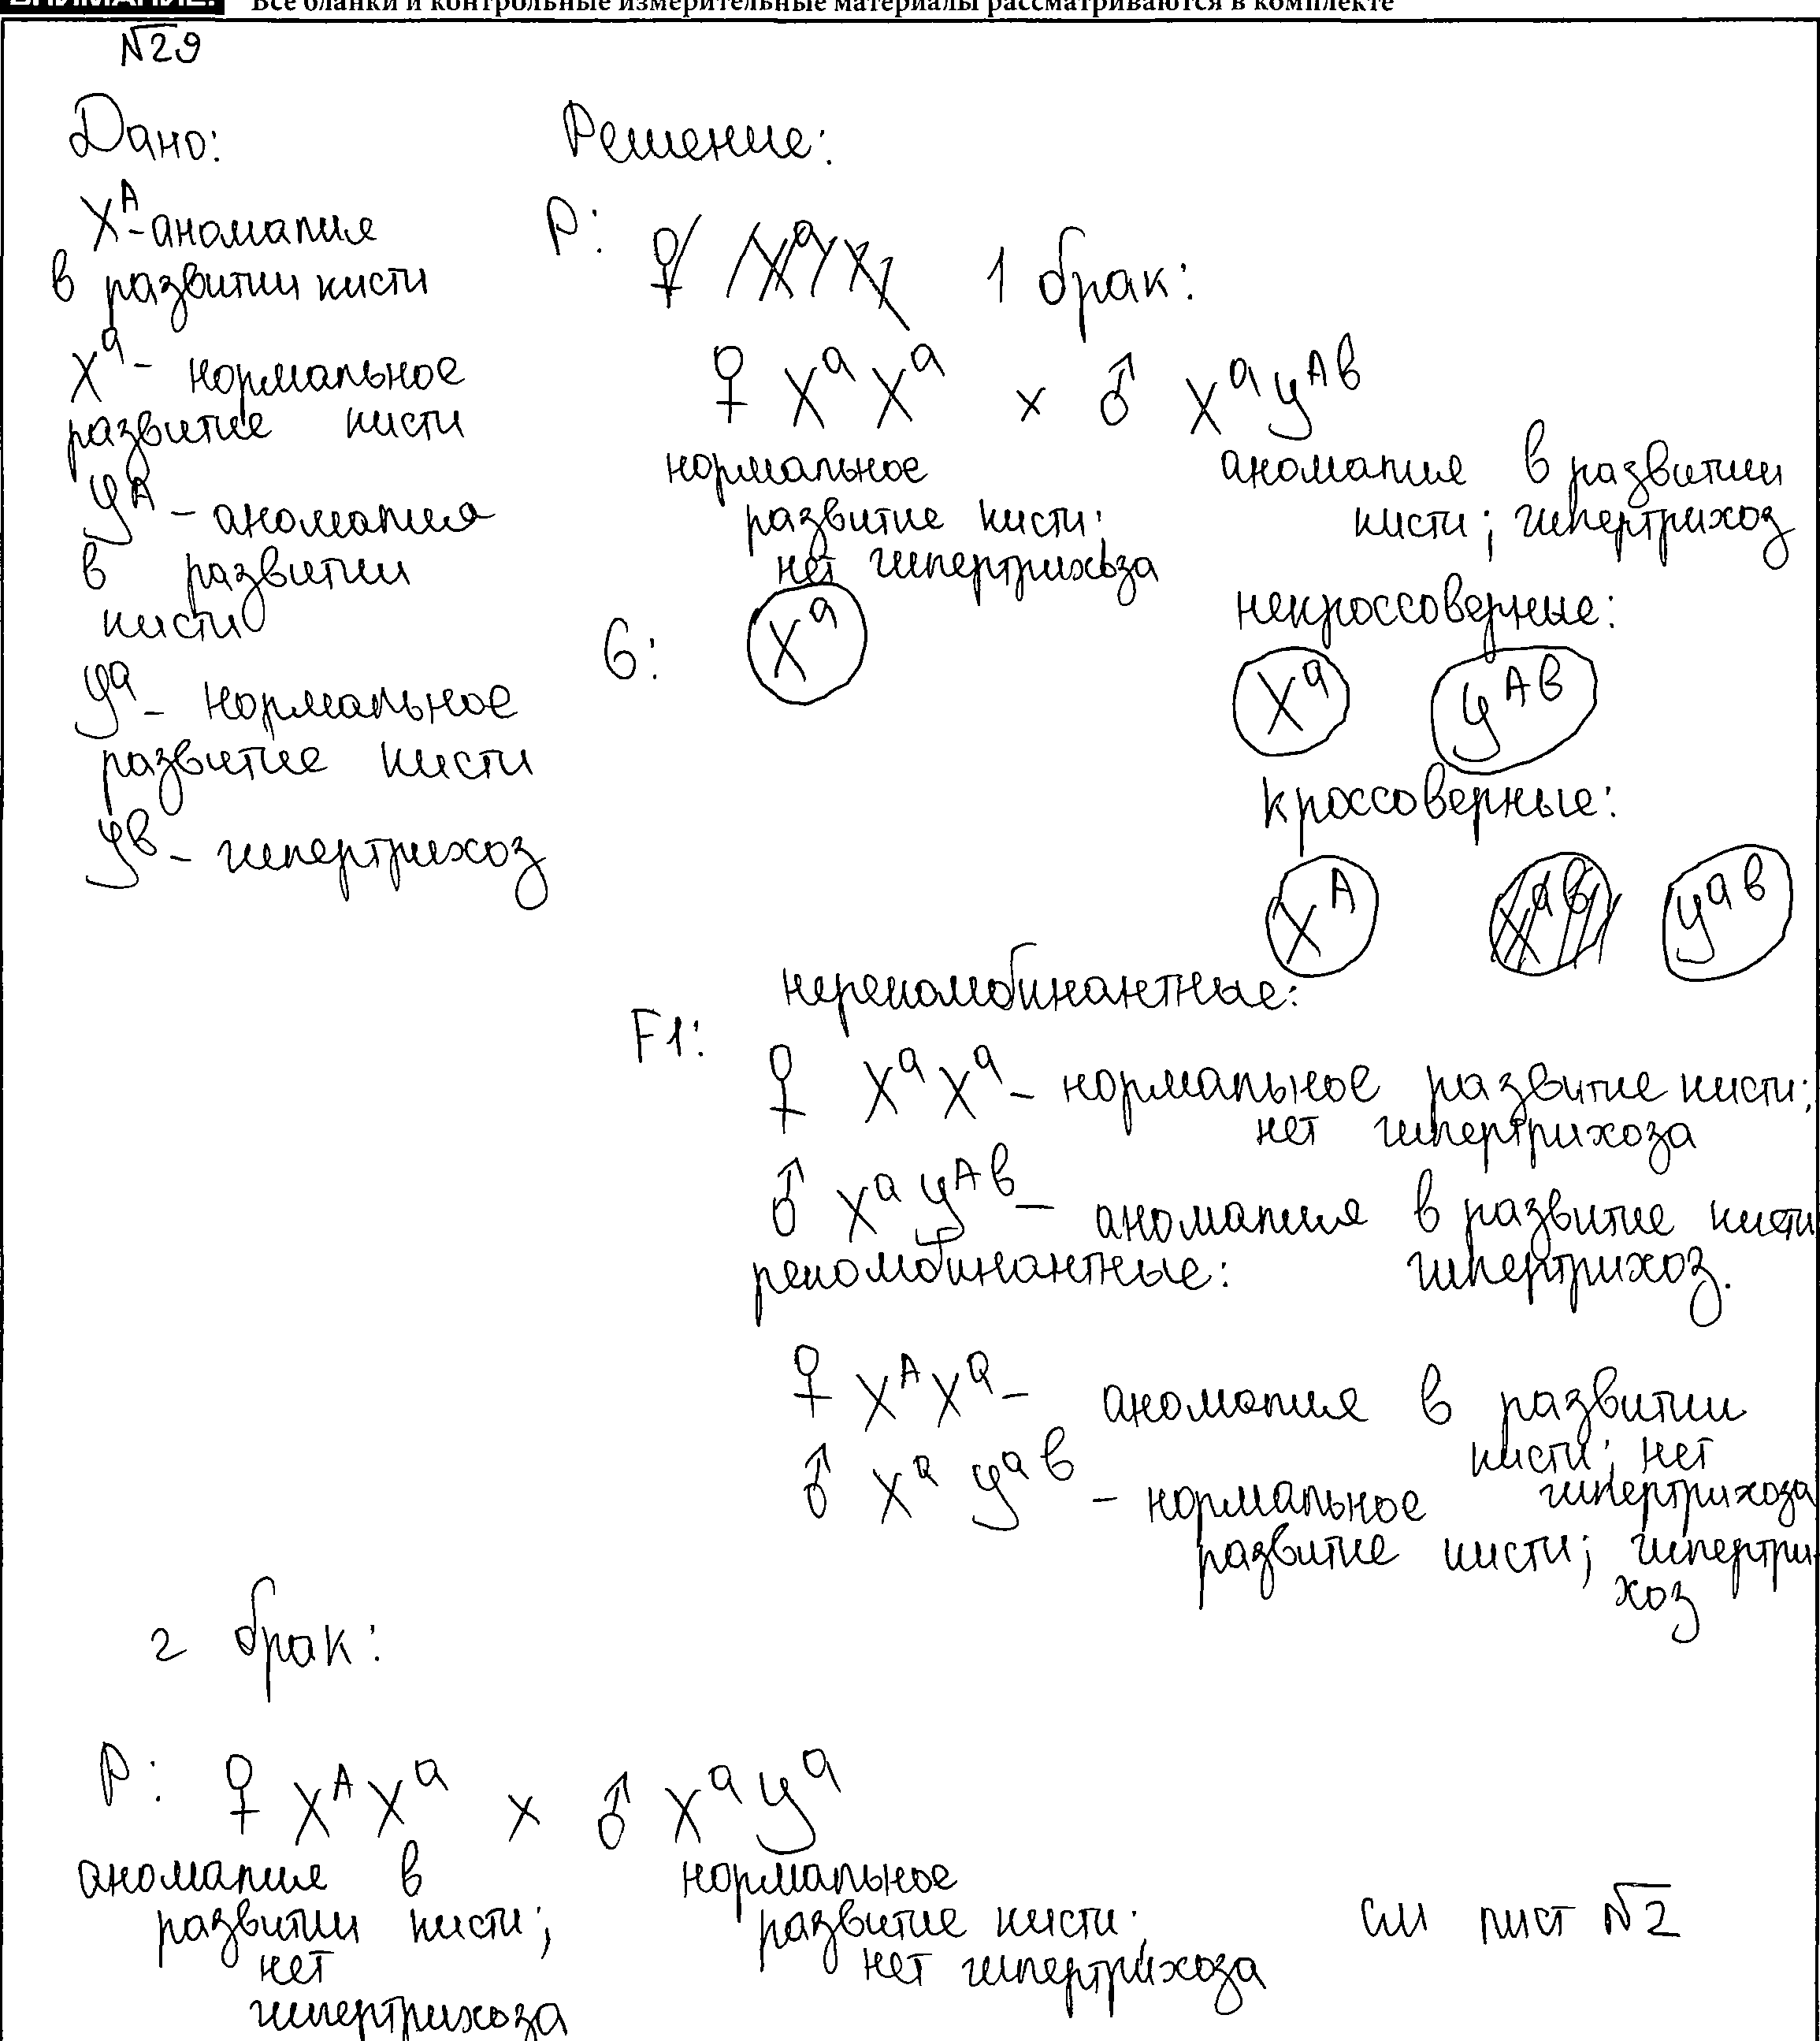 ВНИМАНИЕ! Все бланки и контрольные измерительные материалы рассматриваются в комплекте
№29
Дано:
X^A - аномалия
в развитии кисти
X^a - нормальное
развитие кисти
Y^A - аномалия
в развитии
кисти
Y^a - нормальное
развитие кисти
Y^b - гипертрихоз
Решение:
P: 1 брак:
♀ X^a X^a x ♂ X^a Y^Ab
нормальное
развитие кисти;
нет гипертрихоза
аномалия в развитии
кисти; гипертрихоз
G: X^a
некроссоверные:
X^a Y^Ab
кроссоверные:
X^A Y^ab
F1: нерекомбинантные:
♀ X^a X^a - нормальное развитие кисти;
нет гипертрихоза
♂ X^a Y^Ab - аномалия в развитие кисти
гипертрихоз.
рекомбинантные:
♀ X^A X^a - аномалия в развитии
кисти; нет
гипертрихоза
♂ X^a Y^ab - нормальное
развитие кисти; гипертри
хоз
2 брак:
P: ♀ X^A X^a x ♂ X^a Y^a
аномалия в
развитии кисти;
нет
гипертрихоза
нормальное
развитие кисти;
нет гипертрихоза
см лист №2